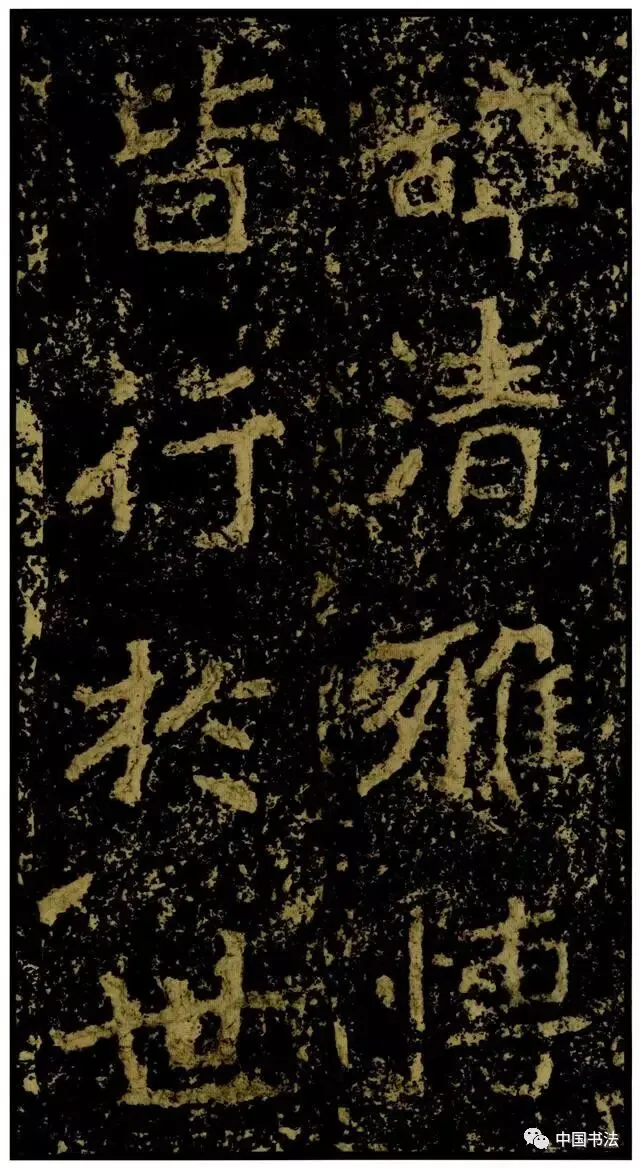 辭清雅博
皆行於世
中国书法